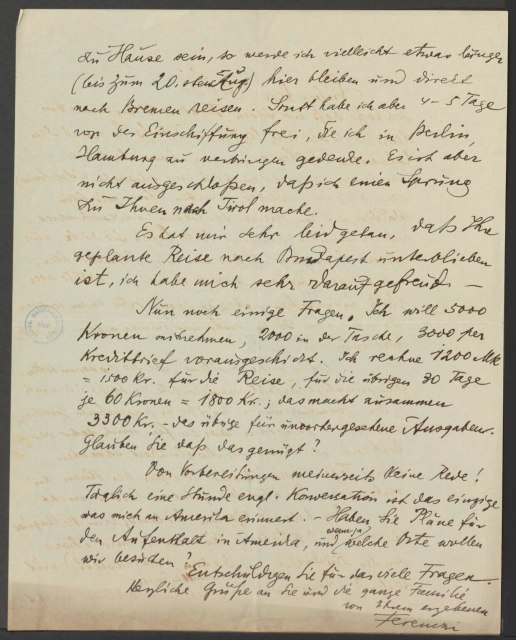 zu Hause sein, so werde ich vielleicht etwas länger
(bis zum 20. sten Aug) hier bleiben und direkt
nach Bremen reisen. Sonst habe ich aber 4–5 Tage
vor der Einschiffung frei, die ich in Berlin,
Hamburg zu verbringen gedenke. Es ist aber
nicht ausgeschloßen, daß ich einen Sprung
zu Ihnen nach Tirol mache.
Es hat mir sehr leid getan, daß Ihre
geplante Reise nach Budapest unterblieben
ist, ich habe mich sehr darauf gefreut –
Nun noch einige Fragen. Ich will 5000
Kronen mitnehmen, 2000 in der Tasche, 3000 per
Kreditbrief vorausgeschickt. Ich rechne 1200 Mk
= 1500 Kr. für die Reise, für die übrigen 30 Tage
je 60 Kronen = 1800 Kr.; das macht zusammen
3300 Kr. – das übrige für unvorhergesehene Ausgaben.
Glauben Sie daß das genügt?
Von Vorbereitungen meinerseits keine Rede!
Täglich eine Stunde engl. Konversation ist das einzige
was mich an Amerika erinnert. – Haben Sie Pläne für
den Aufenthalt in Amerika, und wenn ja, welche Orte wollen
wir besuchen? Entschuldigen Sie für das viele Fragen.
Herzliche Grüße an Sie und die ganze Familie
von Ihrem ergebenen
Ferenczi